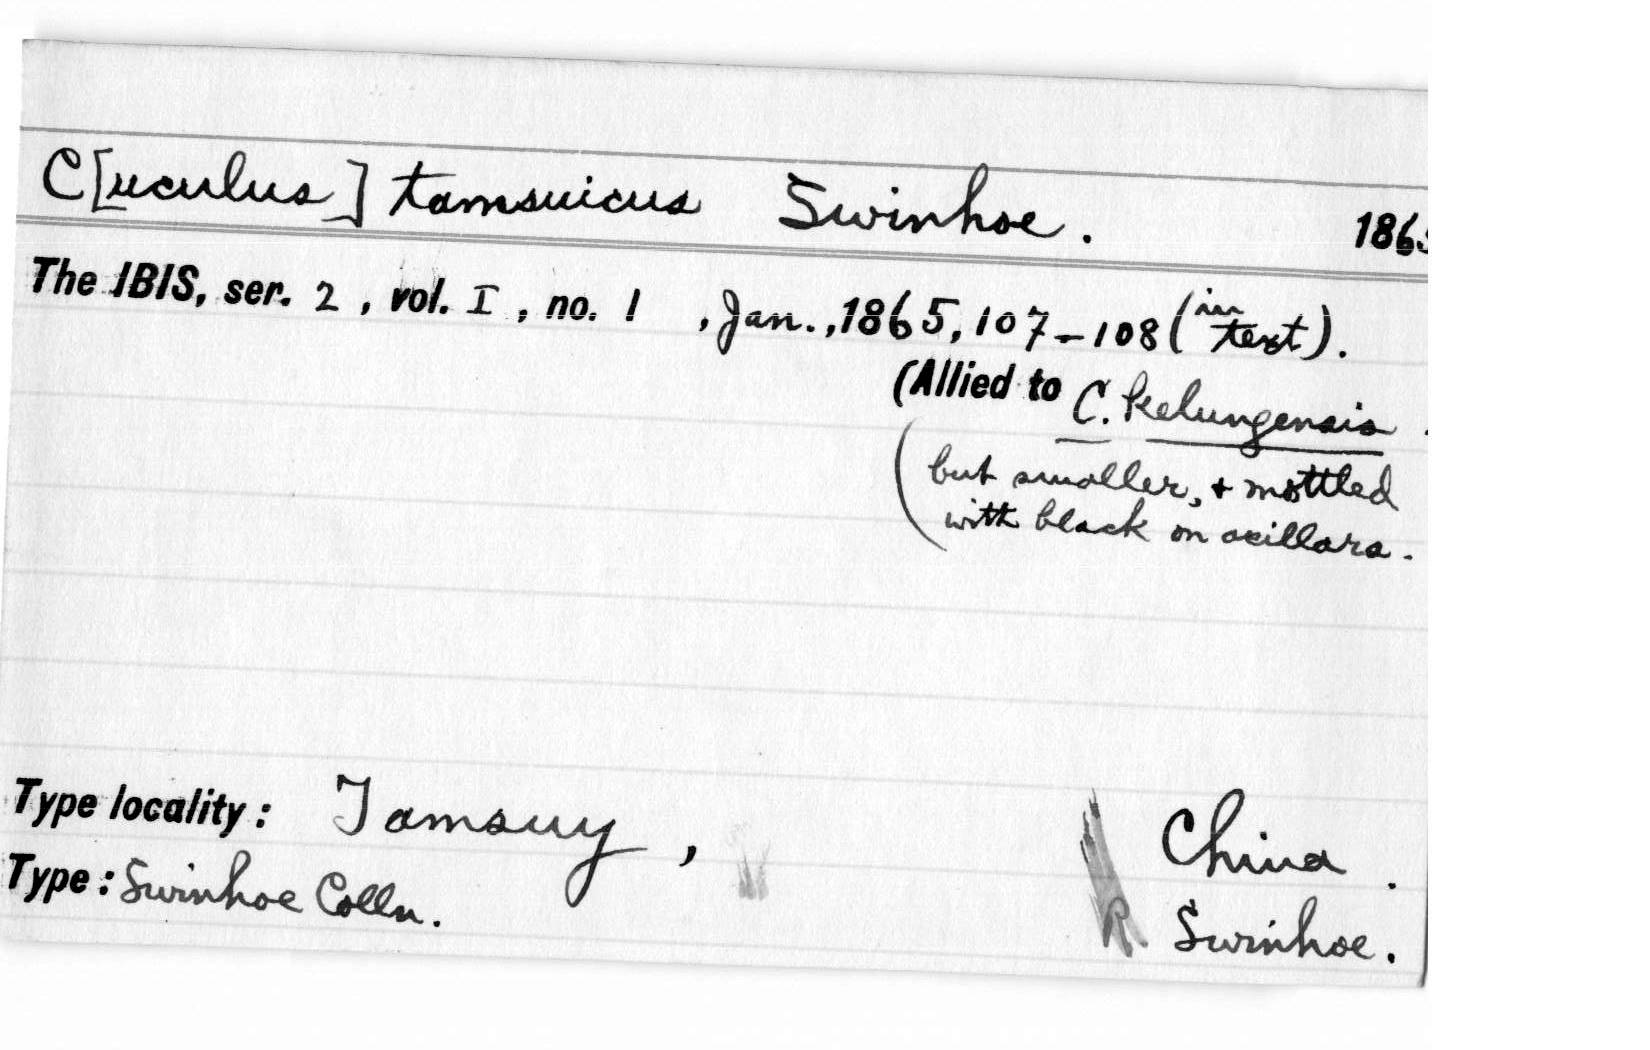 C[uculus] tamsuicus Swinhoe. 1865
The IBIS, ser. 2, vol. I, no. 1, Jan., 1865, 107-108 (in text).
(Allied to C. kelungensis.
(but smaller, + mottled
with black on axillars.
Type locality: Tamsuy, China.
Type: Swinhoe Colln. R Swinhoe.